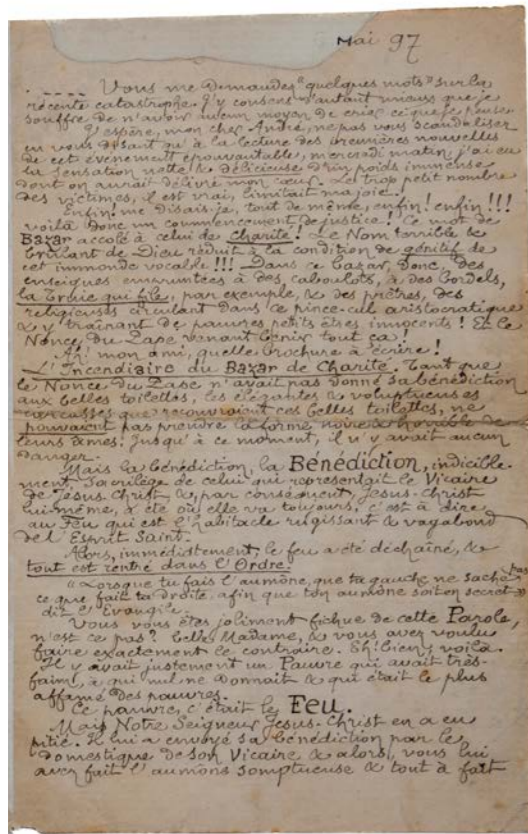 Mai 97
. ---- Vous me demandez "quelques mots" sur la
récente catastrophe. J'y consens d'autant mieux que je
souffre de n'avoir aucun moyen de crier ce que je pense.
J'espère, mon cher André, ne pas vous scandaliser
en vous disant qu'à la lecture des premières nouvelles
de cet événement épouvantable, mercredi matin, j'ai eu
la sensation nette & délicieuse d'un poids immense
dont on aurait délivré mon cœur. Le trop petit nombre
des victimes, il est vrai, limitait ma joie !
Enfin ! me disais-je, tout de même, enfin ! enfin !!!
voilà donc un commencement de justice ! Ce mot de
Bazar accolé à celui de charité ! Le Nom terrible &
brûlant de Dieu réduit à la condition de génitif de
cet immonde vocable !!! Dans ce bazar, donc, des
enseignes empruntées à des caboulots, à des bordels,
la Truie qui file, par exemple, & des prêtres, des
religieuses circulant dans ce pince-cul aristocratique
& y traînant de pauvres petits êtres innocents ! Et le
Nonce du Pape venant bénir tout ça !
Ah ! mon ami, quelle brochure à écrire !
L'Incendiaire du Bazar de Charité. Tant que
le Nonce du Pape n'avait pas donné sa bénédiction
aux belles toilettes, les élégantes & voluptueuses
carcasses que recouvraient ces belles toilettes, ne
pouvaient pas prendre la forme noire & horrible de
leurs âmes. Jusqu'à ce moment, il n'y avait aucun
danger.
Mais la bénédiction, la Bénédiction, indicible-
ment sacrilège de celui qui représentait le Vicaire
de Jésus-Christ &, par conséquent, Jésus-Christ
lui-même, a été où elle va toujours, c'est à dire
au Feu qui est l'habitacle rugissant & vagabond
de l'Esprit Saint.
Alors, immédiatement, le feu a été déchaîné, &
tout est rentré dans l'Ordre.
"Lorsque tu fais l'aumône, que ta gauche ne sache pas
ce que fait ta droite, afin que ton aumône soit en secret"
dit l'Evangile.
Vous vous êtes joliment fichue de cette Parole,
n'est ce pas ? belle Madame, & vous avez voulu
faire exactement le contraire. Eh ! bien, voilà.
Il y avait justement un Pauvre qui avait très-
faim, à qui nul ne donnait & qui était le plus
affamé des pauvres.
Ce pauvre, c'était le Feu.
Mais Notre Seigneur Jésus-Christ en a eu
pitié. Il lui a envoyé sa bénédiction par le
domestique de son Vicaire & alors, vous lui
avez fait l'aumône somptueuse & tout à fait